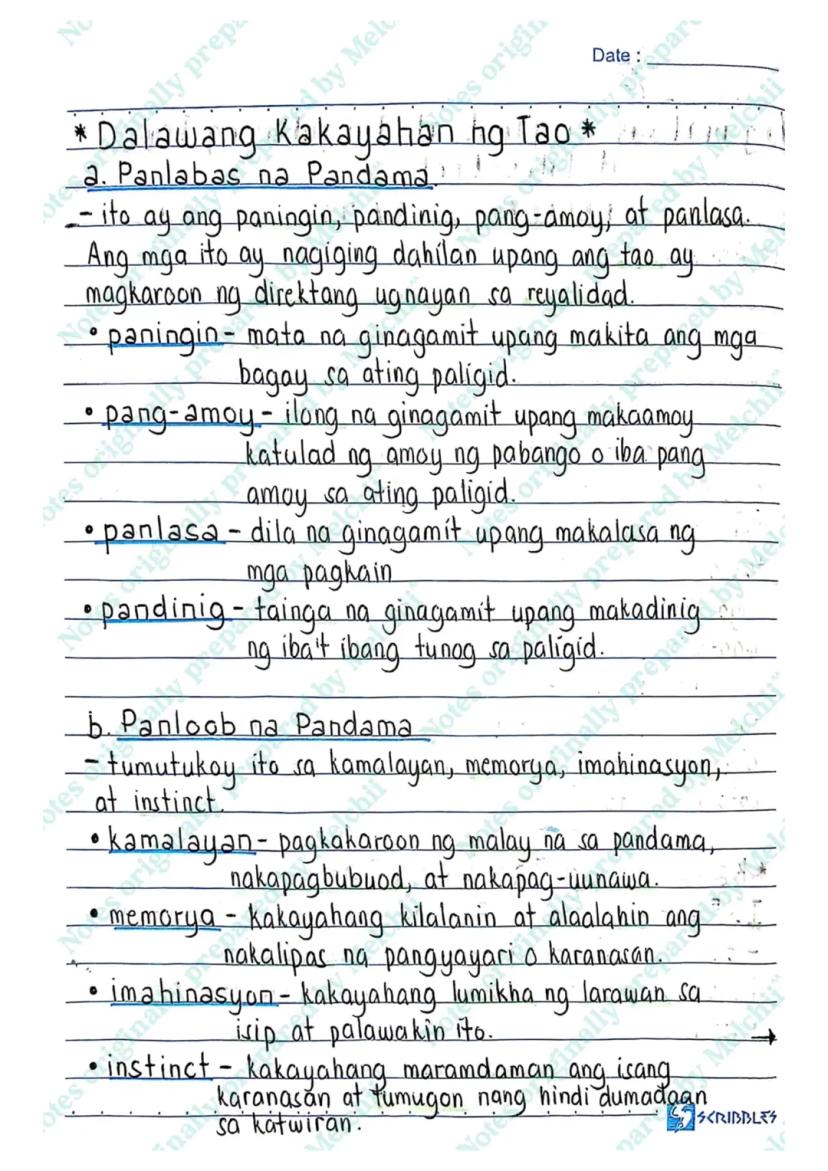 Date :
* Dalawang Kakayahan ng Tao *
a. Panlabas na Pandama
- ito ay ang paningin, pandinig, pang-amoy, at panlasa.
Ang mga ito ay nagiging dahilan upang ang tao ay
magkaroon ng direktang ugnayan sa reyalidad.
• paningin - mata na ginagamit upang makita ang mga
bagay sa ating paligid.
• pang-amoy - ilong na ginagamit upang makaamoy
katulad ng amoy ng pabango o iba pang
amoy sa ating paligid.
• panlasa - dila na ginagamit upang makalasa ng
mga pagkain
• pandinig - tainga na ginagamit upang makadinig
ng iba't ibang tunog sa paligid.
b. Panloob na Pandama
- tumutukoy ito sa kamalayan, memorya, imahinasyon,
at instinct.
• kamalayan - pagkakaroon ng malay na sa pandama,
nakapagbubuod, at nakapag-uunawa.
• memorya - kakayahang kilalanin at alaalahin ang
nakalipas na pangyayari o karanasan.
• imahinasyon - kakayahang lumikha ng larawan sa
isip at palawakin ito.
→
• instinct - kakayahang maramdaman ang isang
karanasan at tumugon nang hindi dumadaan
sa katwiran.
SCRIBBLES
Notes originally prepared by Melchii